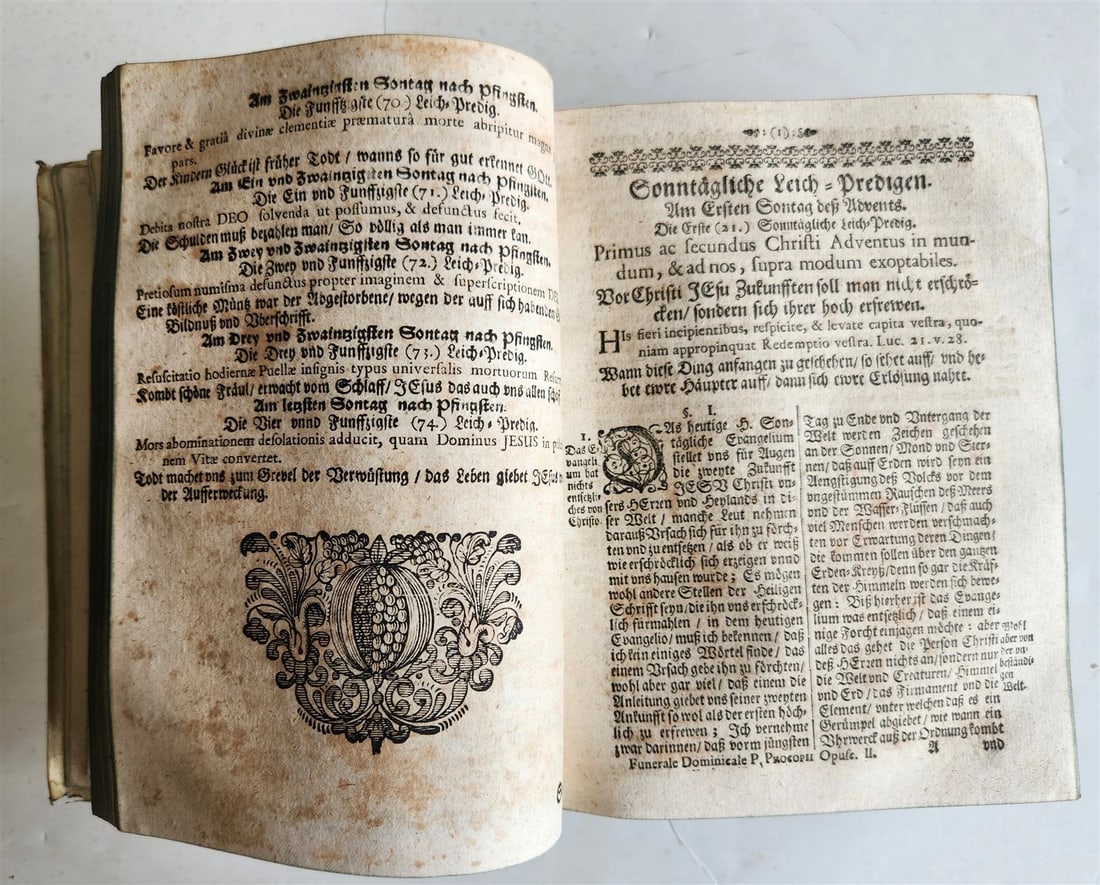 Am Zwaintzigsten Sontag nach Pfingsten.
Die Funfftzigste (70.) Leich-Predig.
Favore & gratiâ divinæ clementiæ præmaturâ morte abripitur magna
pars.
Der Kindern Glück ist früher Todt / wanns so für gut erkennet GOtt.
Am Ein vnd Zwaintzigsten Sontag nach Pfingsten.
Die Ein vnd Funffzigste (71.) Leich-Predig.
Debita nostra DEO solvenda ut possumus, & defunctus fecit.
Die Schulden muß bezahlen man / So völlig als man immer kan.
Am Zwey vnd Zwaintzigsten Sontag nach Pfingsten.
Die Zwey vnd Funffzigste (72.) Leich-Predig.
Pretiosum numisma defunctus propter imaginem & superscriptionem
Eine köstliche Müntz war der Abgestorbene / wegen der auff sich habenden
Bildnuß vnd Vberschrifft.
Am Drey vnd Zwaintzigsten Sontag nach Pfingsten.
Die Drey vnd Funffzigste (73.) Leich-Predig.
Resuscitatio hodiernæ Puellæ insignis typus universalis mortuorum
Kombt schöne Fräul / erwacht vom Schlaff / JEsus das auch vns allen
Am letsten Sontag nach Pfingsten.
Die Vier vnnd Funffzigste (74.) Leich-Predig.
Mors abominationem desolationis adducit, quam Dominus JESUS in
nem Vitæ convertet.
Todt machet vns zum Grewel der Verwüstung / das Leben giebet JEsus
der Aufferweckung.
:(1):
Sonntägliche Leich-Predigen.
Am Ersten Sontag deß Advents.
Die Erste (21.) Sonntägliche Leich-Predig.
Primus ac secundus Christi Adventus in mun-
dum, & ad nos, supra modum exoptabiles.
Vor Christi JEsu Zukunfften soll man nicht erschrö-
cken / sondern sich ihrer hoch erfrewen.
HIs fieri incipientibus, respicite, & levate capita vestra, quo-
niam appropinquat Redemptio vestra. Luc. 21. v. 28.
Wann diese Ding anfangen zu geschehen / so sehet auff / vnd he-
bet ewre Häupter auff / dann sich ewre Erlösung nahet.
§. I.
1.
Das E-
vangeli-
um hat
nichts
entsetzli-
ches von
Christo
DAs heutige H. Son-
tägliche Evangelium
stellet vns für Augen
die zweyte Zukunfft
JESV Christi vn-
sers HErren vnd Heylands in di-
ser Welt / manche Leut nehmen
darauß Vrsach sich für ihn zu förch-
ten vnd zu entsetzen / als ob er weiß
wie erschröcklich sich erzeigen vnnd
mit vns hausen wurde; Es mögen
wohl andere Stellen der Heiligen
Schrifft seyn / die ihn vns erschröck-
lich fürmahlen / in dem heutigen
Evangelio / muß ich bekennen / daß
ich kein einiges Wörtel finde / das
einem Vrsach gebe ihn zu förchten /
wohl aber gar viel / daß einem die
Anleitung giebet vns seiner zweyten
Ankunfft so wol als der ersten höch-
lich zu erfrewen; Ich vernehme
zwar darinnen / daß vorm jüngsten
Tag zu Ende vnd Vntergang der
Welt werden Zeichen geschehen
an der Sonnen / Mond vnd Ster-
nen / daß auff Erden wird seyn ein
Aengstigung deß Volcks vor dem
vngestümmen Rauschen deß Meers
vnd der Wasser-Flüssen / daß auch
viel Menschen werden verschmach-
ten vor Erwartung deren Dingen /
die kommen sollen über den gantzen
Erden-Kreyß / denn so gar die Kräf-
ten der Himmeln werden sich bewe-
gen: Biß hierher ist das Evange-
lium was entsetzlich / daß einem ei-
nige Forcht einjagen möchte: aber
alles das gehet die Person Christi
deß HErzen nichts an / sondern nur
die Welt vnd Creaturen / Himmel
vnd Erd / das Firmament vnd die
Element / vnter welchen daß es ein
Gerümpel abgiebet / wie wann ein
Vhrwerck auß der Ordnung kombt
Wohl
aber von
der vn-
beständi-
gen
Welt.
A
vnd
Funerale Dominicale P. PROCOPII Opusc. II.